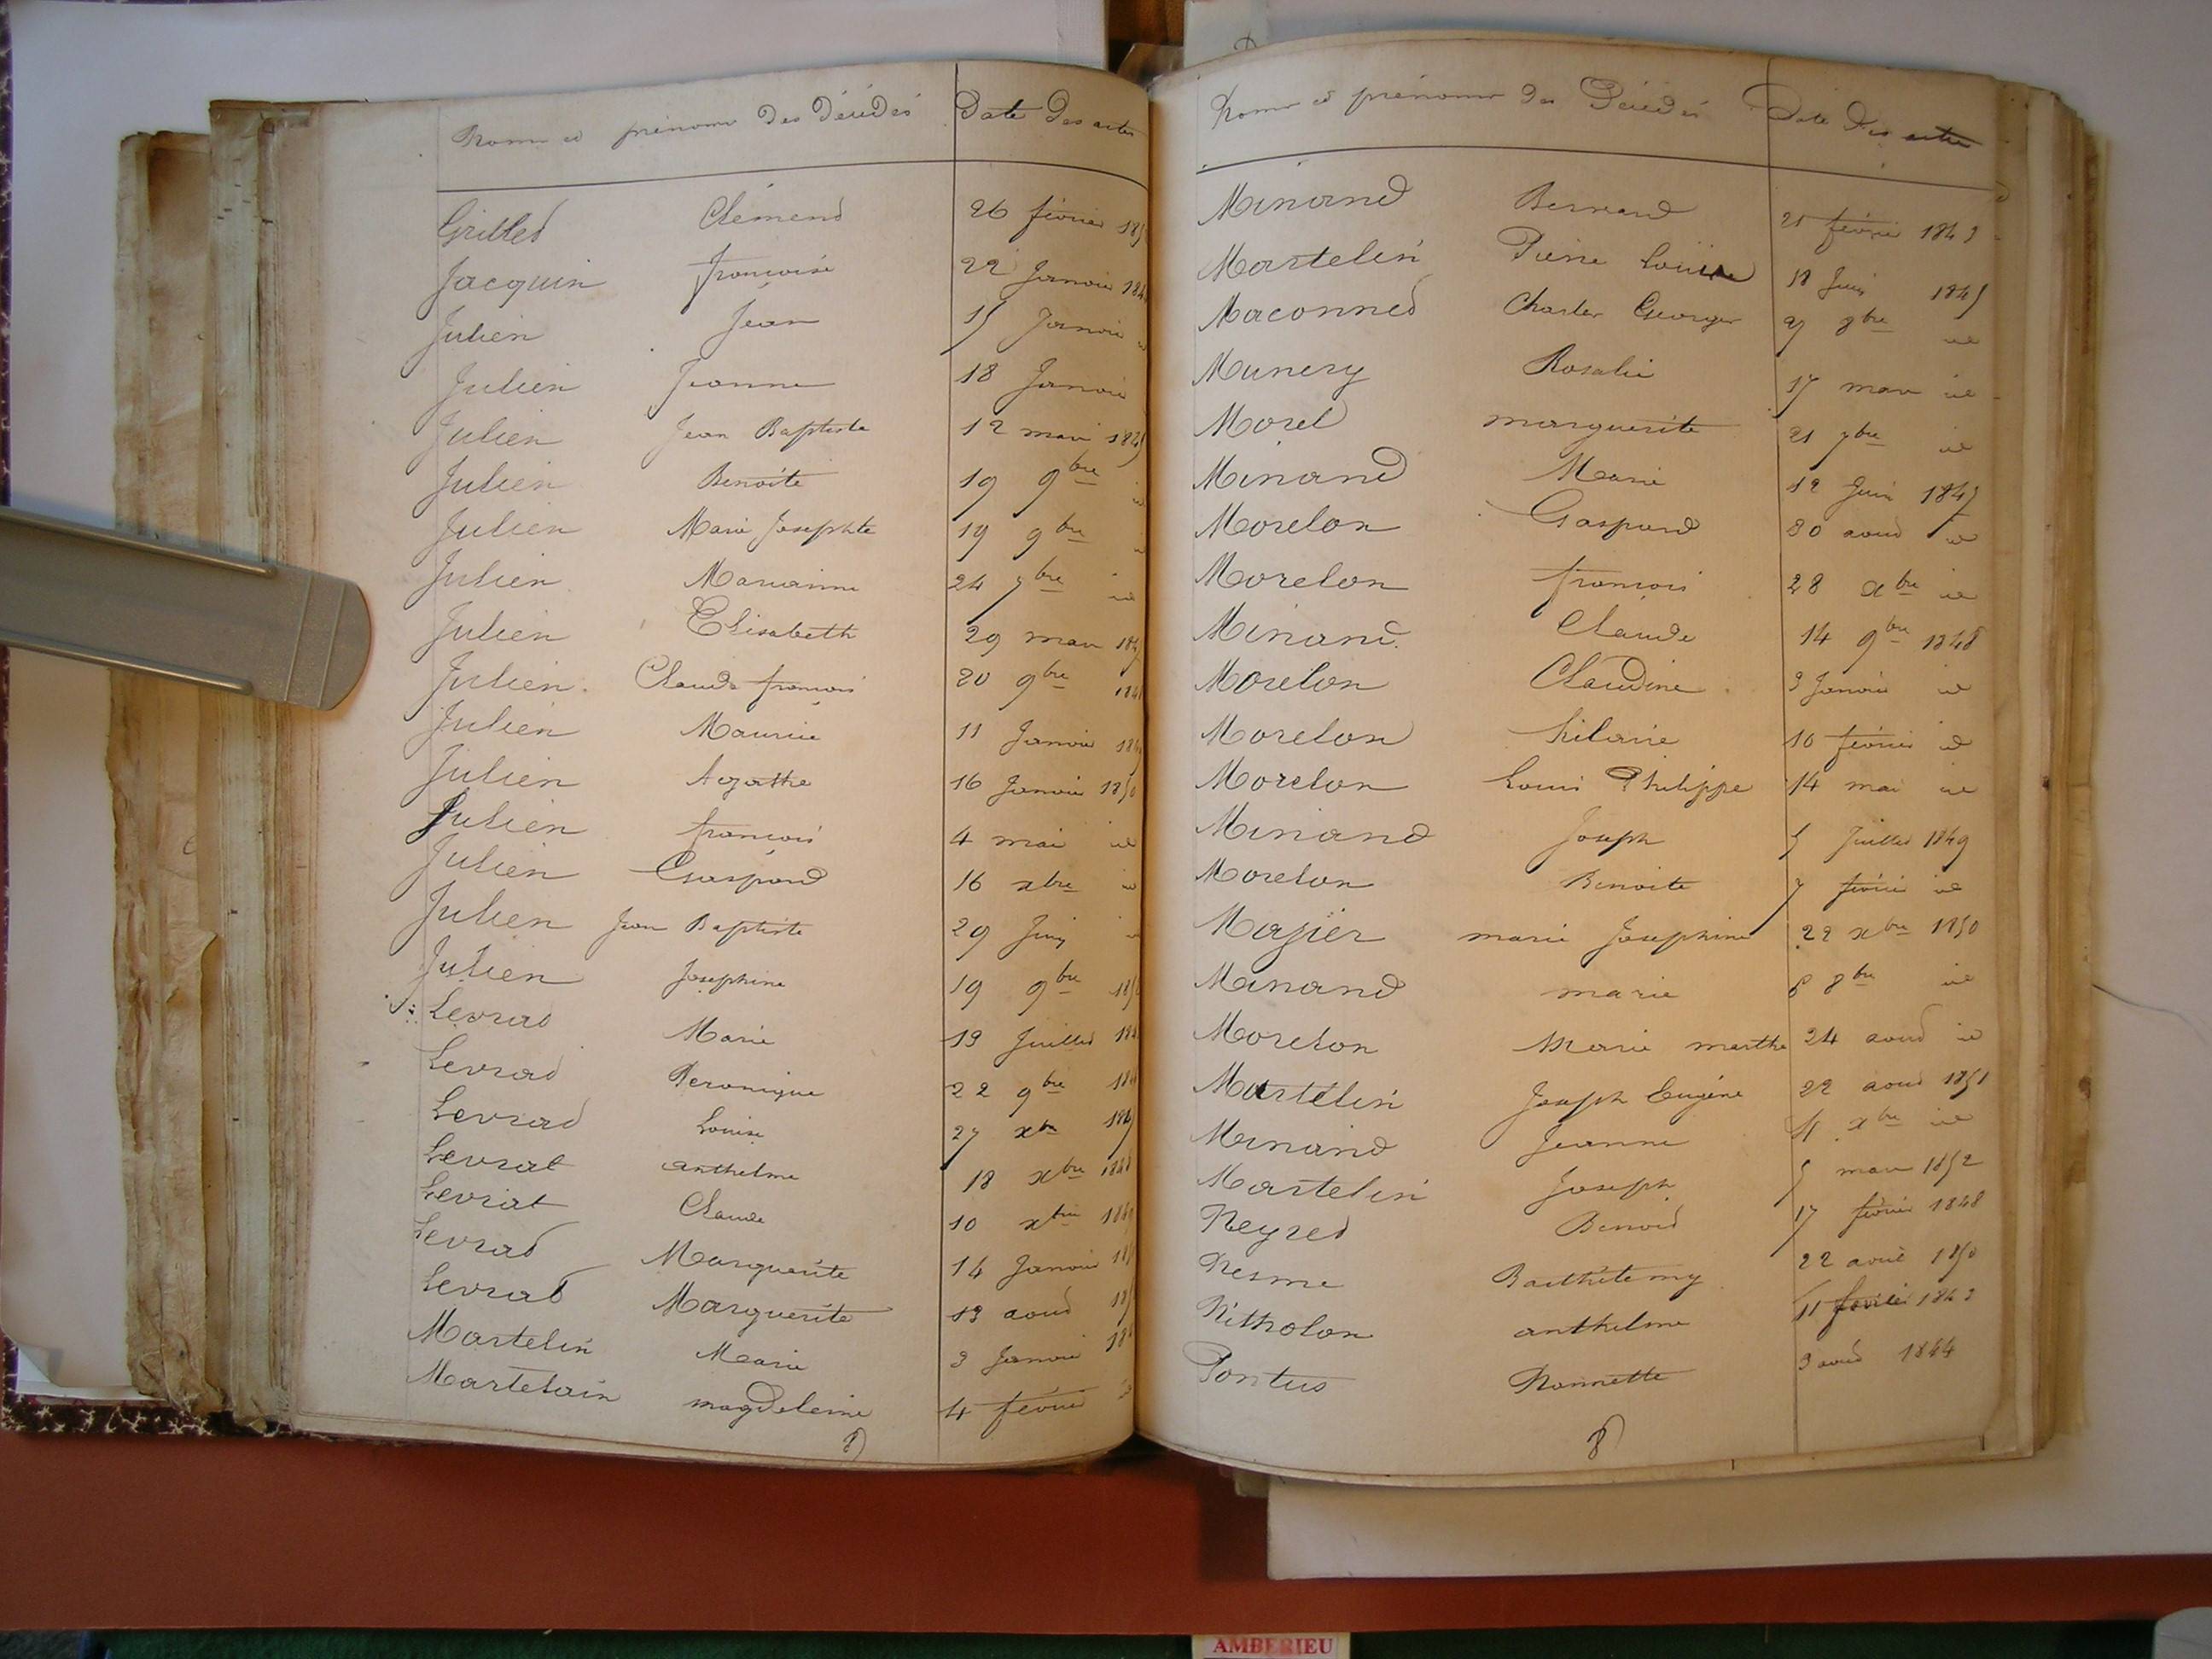 Noms et prénoms des Décédés Date des actes
Grillet Clément 26 février
Jacquin françoise 22 Janvier
Julien Jean 15 Janvier
Julien Jeanne 18 Janvier
Julien Jean Baptiste 12 mars
Julien Benoite 19 9bre
Julien Marie Josephte 19 9bre
Julien Marianne 24 7bre id
Julien Elisabeth 29 mars
Julien Claude françois 20 9bre
Julien Maurice 11 Janvier
Julien Agathe 16 Janvier 1850
Julien françois 4 mai id
Julien Gaspard 16 xbre id
Julien Jean Baptiste 29 Juin
Julien Josephine 19 9bre
Levrat Marie 19 Juillet
Levrat Veronique 22 9bre
Levrat Louise 27 xbre
Levrat anthelme 18 xbre 1848
Levrat Claude 10 xbre
Levrat Marguerite 14 Janvier
Levrat Marguerite 13 aout
Martelin Marie 3 Janvier
Martelain magdeleine 4 février
Noms et prénoms des Décédés Date des actes
Minand Bernard 21 février 1843
Martelin Pierre Louis 18 Juin 1845
Maconned Charles Georges 27 8bre id
Munery Rosalie 17 mars id
Morel marguerite 21 7bre id
Minand Marie 12 Juin 1847
Morelon Gaspard 30 aout id
Morelon françois 28 xbre id
Minand Claude 14 9bre 1848
Morelon Claudine 3 Janvier id
Morelon hilaire 10 février id
Morelon Louis Philippe 14 mai id
Minand Joseph 5 Juillet 1849
Morelon Benoite 7 février id
Majier marie Josephine 22 xbre 1850
Minand marie 6 8bre id
Morelon Marie marthe 24 aout id
Martelin Joseph Eugène 22 aout 1851
Minand Jeanne 11 xbre id
Martelin Joseph 5 mars 1852
Neyret Benoit 17 février 1848
Nesme Barthélemy 22 avril 1850
Nitholon anthelme 11 février 1843
Pontus Nannette 3 aout 1844
AMBERIEU